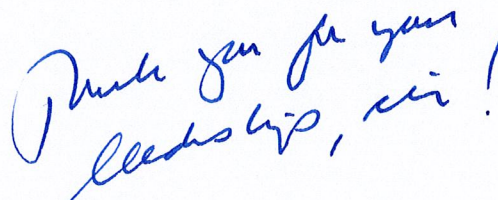 Thank you for your
leadership, sir!